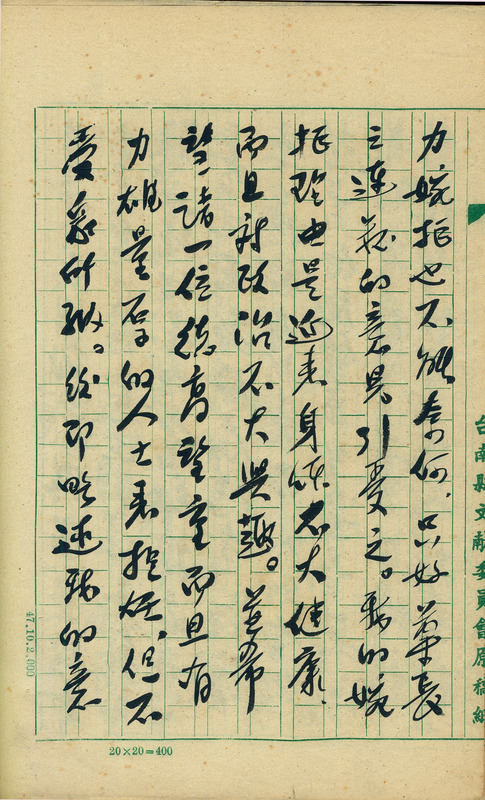 台南縣文献委員會原稿紙
力婉拒也不能奈何，只好葉長
之的意見引受之。我的婉
拒理由是近来身体不大健康，
而且對政治不大興趣。並希
望請一位德高望重而且有
力雄量厚的人士来担任，但不
所。即略述我的意
47.10.2.000
20×20=400